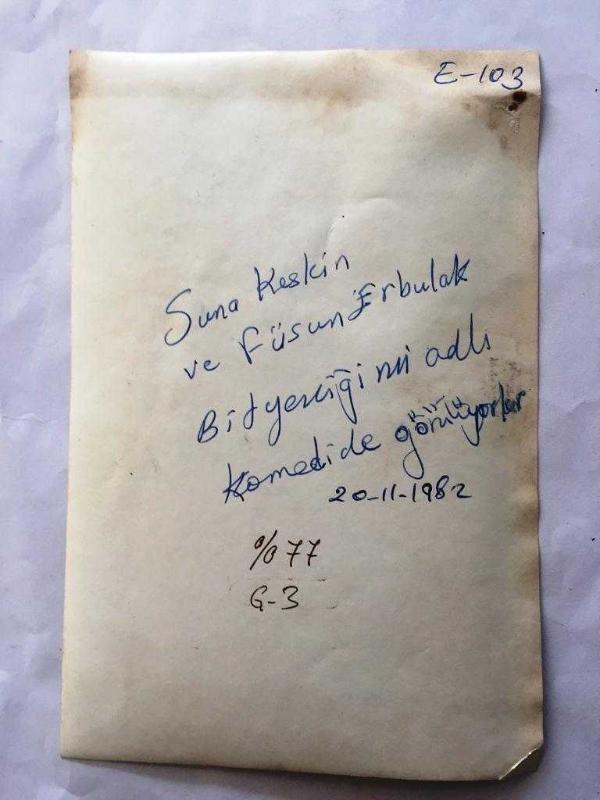 E-103
Suna Keskin
ve Füsun Erbulak
Bityeniği mi adlı
Komedide görülüyorlar
20-11-1982
%77
G-3